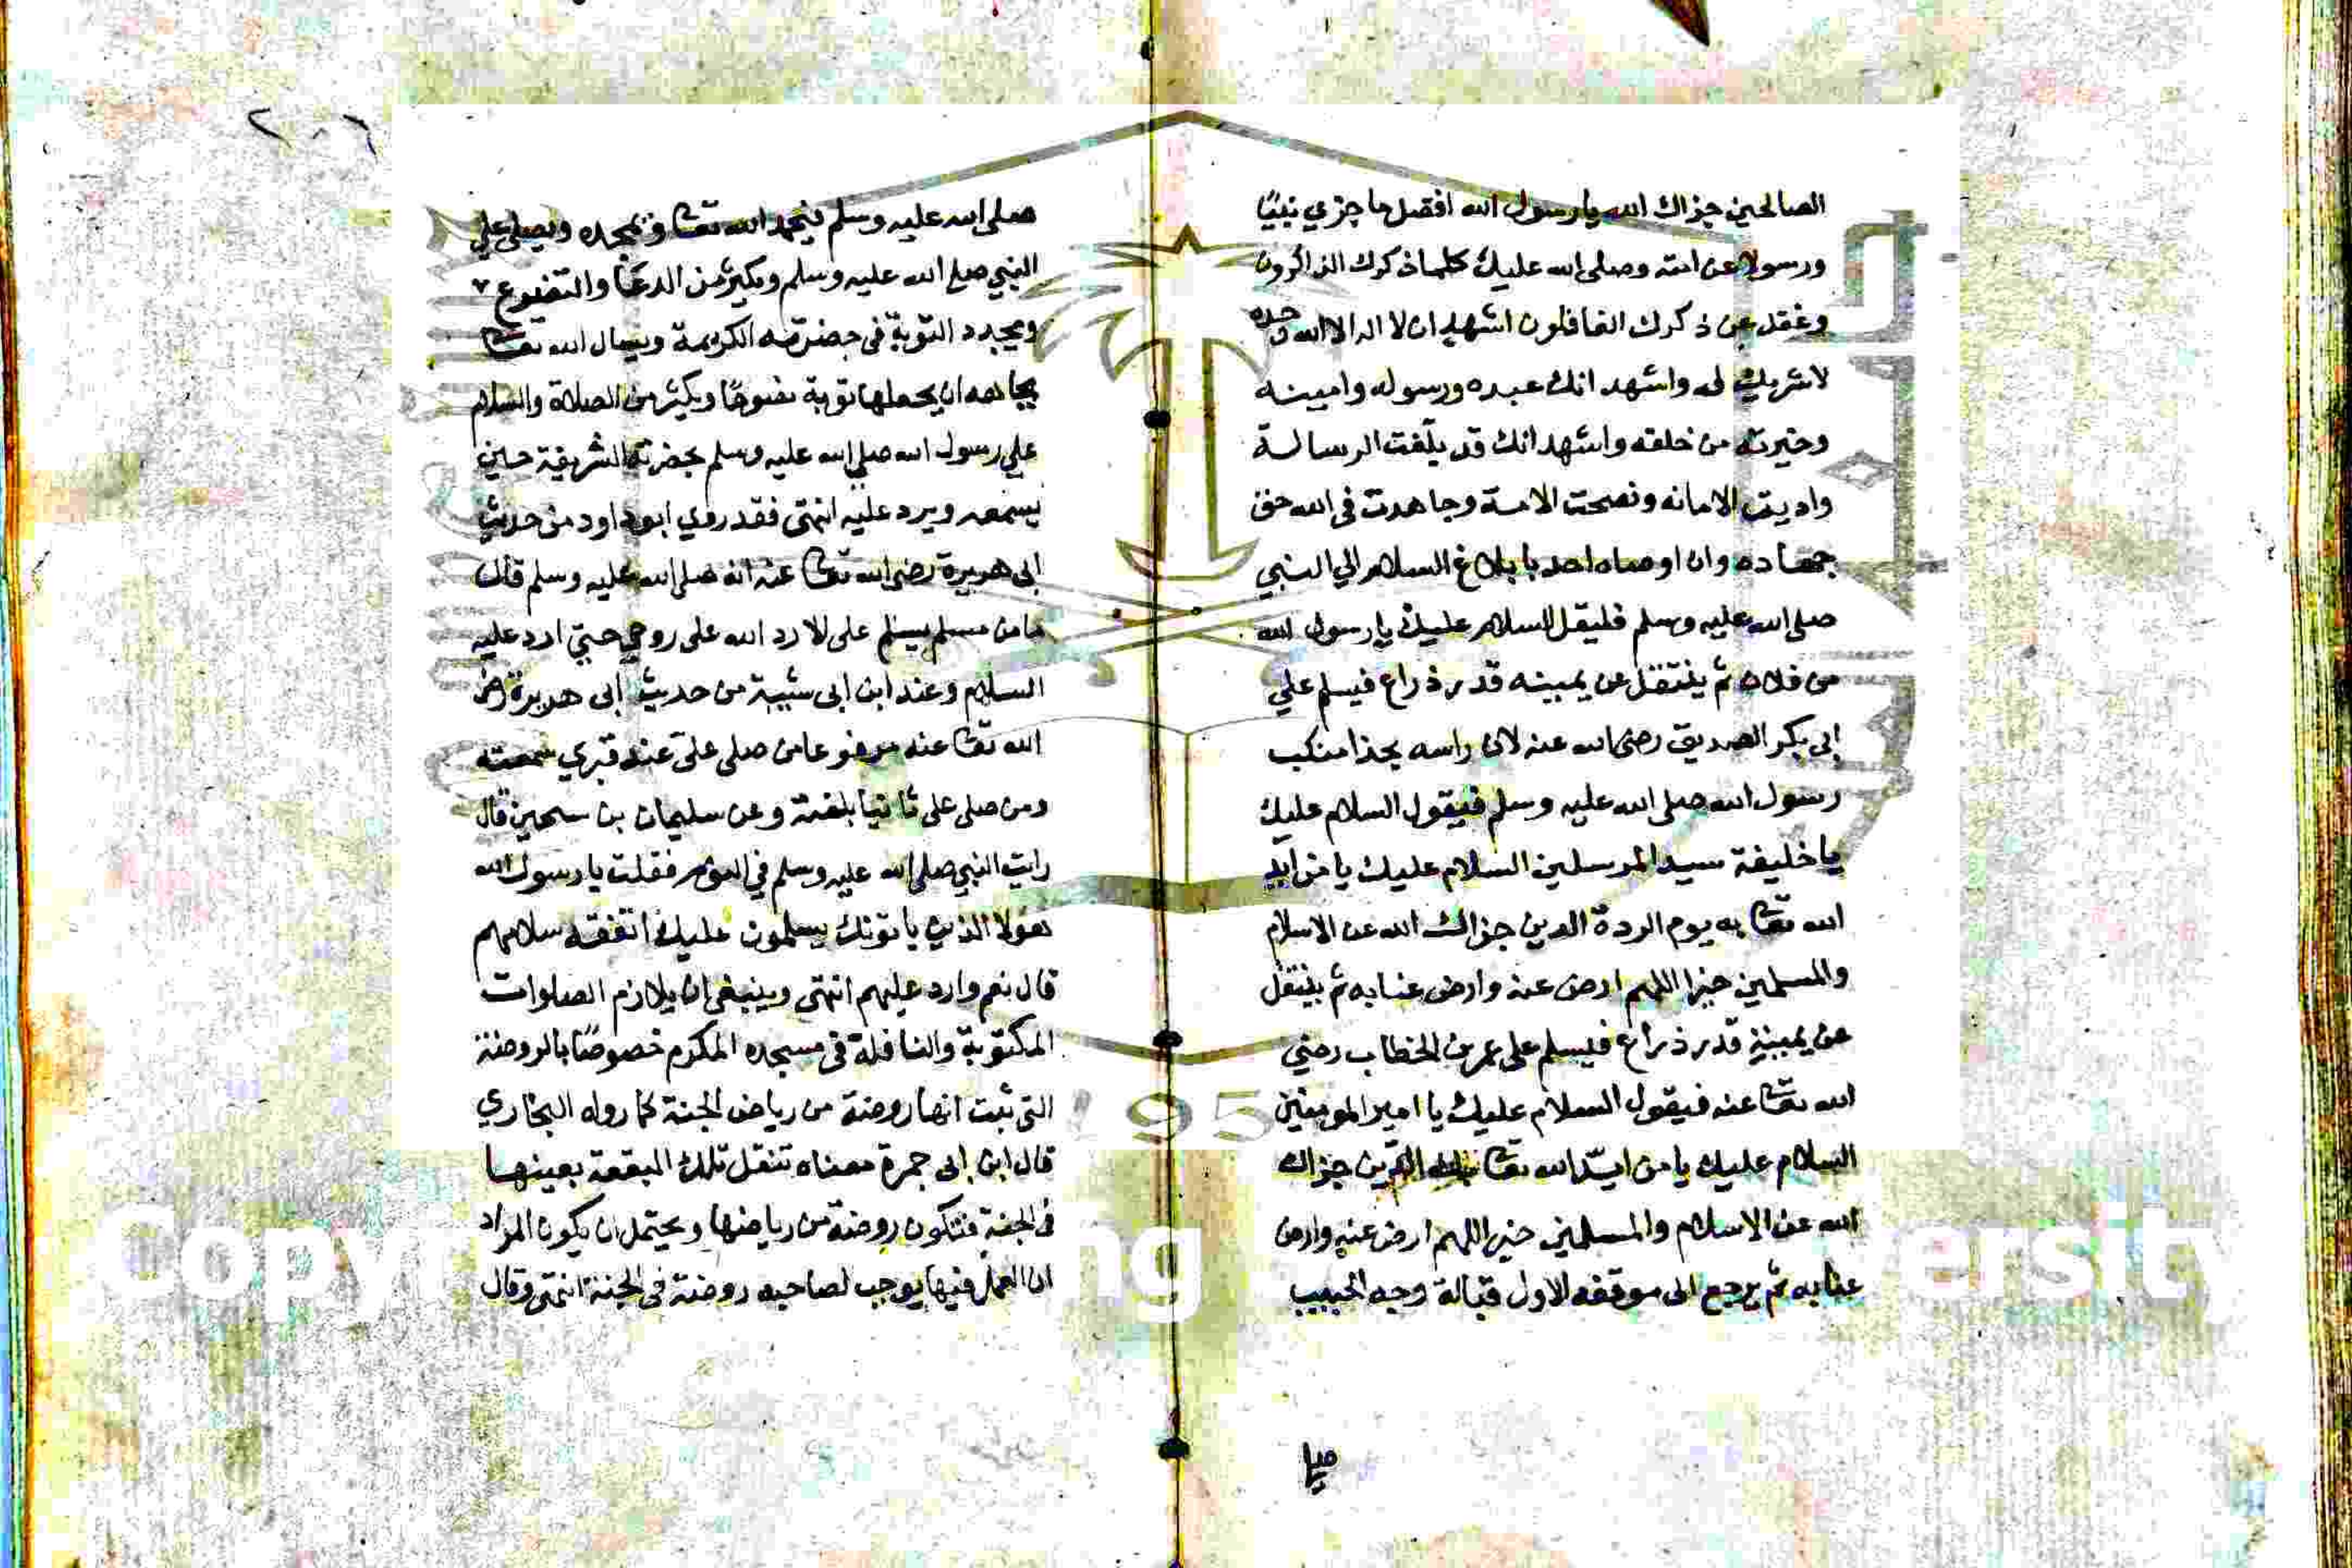 الصالحين جزاك الله يا رسول الله افضل ما جزي نبيًا
ورسولا عن امته وصلى الله عليك كلما ذكرك الذاكرون
وغفل عن ذكرك الغافلون اشهد ان لا اله الا الله وحده
لا شريك له واشهد انك عبده ورسوله وامينه
وخيرته من خلقه واشهد انك قد بلّغت الرسالة
واديت الامانه ونصحت الامة وجاهدت فى الله حق
جهاده وان اوصاه احد بابلاغ السلام الي النبي
صلى الله عليه وسلم فليقل السلام عليك يا رسول الله
من فلان ثم ينتقل عن يمينه قدر ذراع فيسلم علي
ابى بكر الصديق رضى الله عنه لان راسه بحذا منكب
رسول الله صلى الله عليه وسلم فيقول السلام عليك
يا خليفة سيد المرسلين السلام عليك يا من ايد
الله تعا به يوم الردة الدين جزاك الله عن الاسلام
والمسلمين خيرا اللهم ارض عنه وارض عنا به ثم ينتقل
عن يمينه قدر ذراع فيسلم على عمر بن الخطاب رضي
الله تعا عنه فيقول السلام عليك يا امير المومنين
السلام عليك يا من ايّد الله تعا به الدين جزاك
الله عن الاسلام والمسلمين خيرا اللهم ارض عنه وارض
عنا به ثم يرجع الى موقفه الاول قبالة وجه الحبيب
٢٠٦
صلى الله عليه وسلم فيحمد الله تعا ويمجده ويصلى علي
النبي صلى الله عليه وسلم ويكثر من الدعا والتضرع
ويجدد التوبة فى حضرته الكريمة ويسال الله تعا
بجاهه ان يجعلها توبة نصوحًا ويكثر من الصلاة والسلام
علي رسول الله صلى الله عليه وسلم بحضرته الشريفة حين
يسمعه ويرد عليه انتهى فقد روي ابو داود من حديث
ابى هريرة رضى الله تعا عنه انه صلى الله عليه وسلم قال
ما من مسلم يسلم على لا رد الله على روحي حتي ارد عليه
السلام وعند ابن ابى شيبة من حديث ابى هريرة رضى
الله تعا عنه مرفوعا من صلى علىّ عند قبري سمعته
ومن صلى على نائيا بلغته وعن سليمان بن سحيم قال
رايت النبي صلى الله عليه وسلم في النوم فقلت يا رسول الله
هولا الذين ياتونك يسلمون عليك اتفقه سلامهم
قال نعم وارد عليهم انتهى وينبغى ان يلازم الصلوات
المكتوبة والنافلة فى مسجده المكرم خصوصًا بالروضة
التى ثبت انها روضة من رياض الجنة كما رواه البخاري
قال ابن ابى جمرة معناه تنقل تلك البقعة بعينها
فى الجنة فتكون روضة من رياضها ويحتمل ان يكون المراد
ان العمل فيها يوجب لصاحبه روضة فى الجنة انتهى وقال